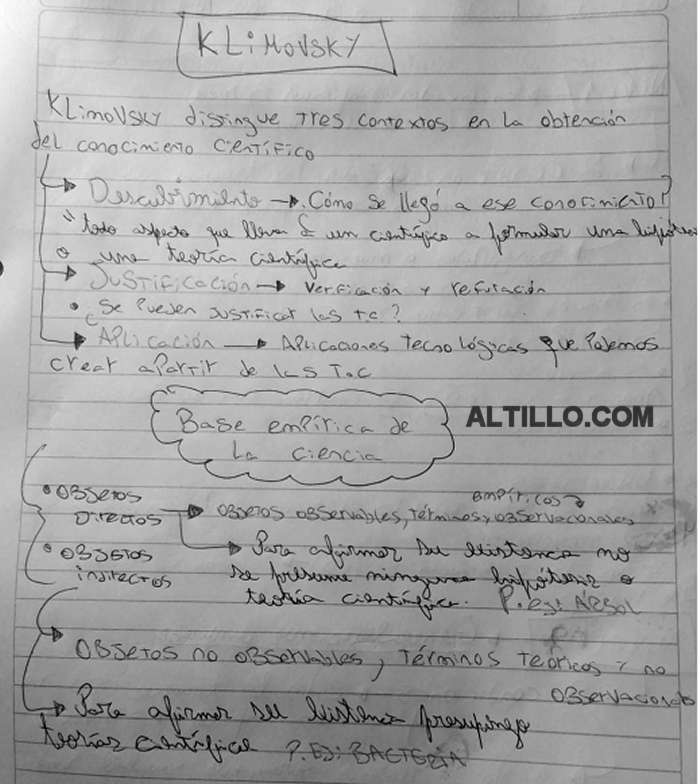 KLIMOVSKY
KLimovsky distingue tres contextos en la obtención
del conocimiento científico
Descubrimiento → ¿Cómo se llegó a ese conocimiento?
todo aspecto que lleva a un científico a formular una hipótesis
o una teoría científica
Justificación → Verificación y refutación
• ¿Se pueden justificar las t.c?
Aplicación → Aplicaciones tecnológicas que podemos
crear apartir de las T.C
Base empírica de
la ciencia
ALTILLO.COM
• Objetos
directos → objetos observables, términos empíricos y observacionales
Para afirmar su existencia no
• Objetos
indirectos
se presume ninguna hipótesis o
teoría científica. P.ej: ÁRBOL
objetos no observables, términos teóricos y no
observacionales
Para afirmar su existencia presupongo
teorías científicas P.Ej: BACTERIA